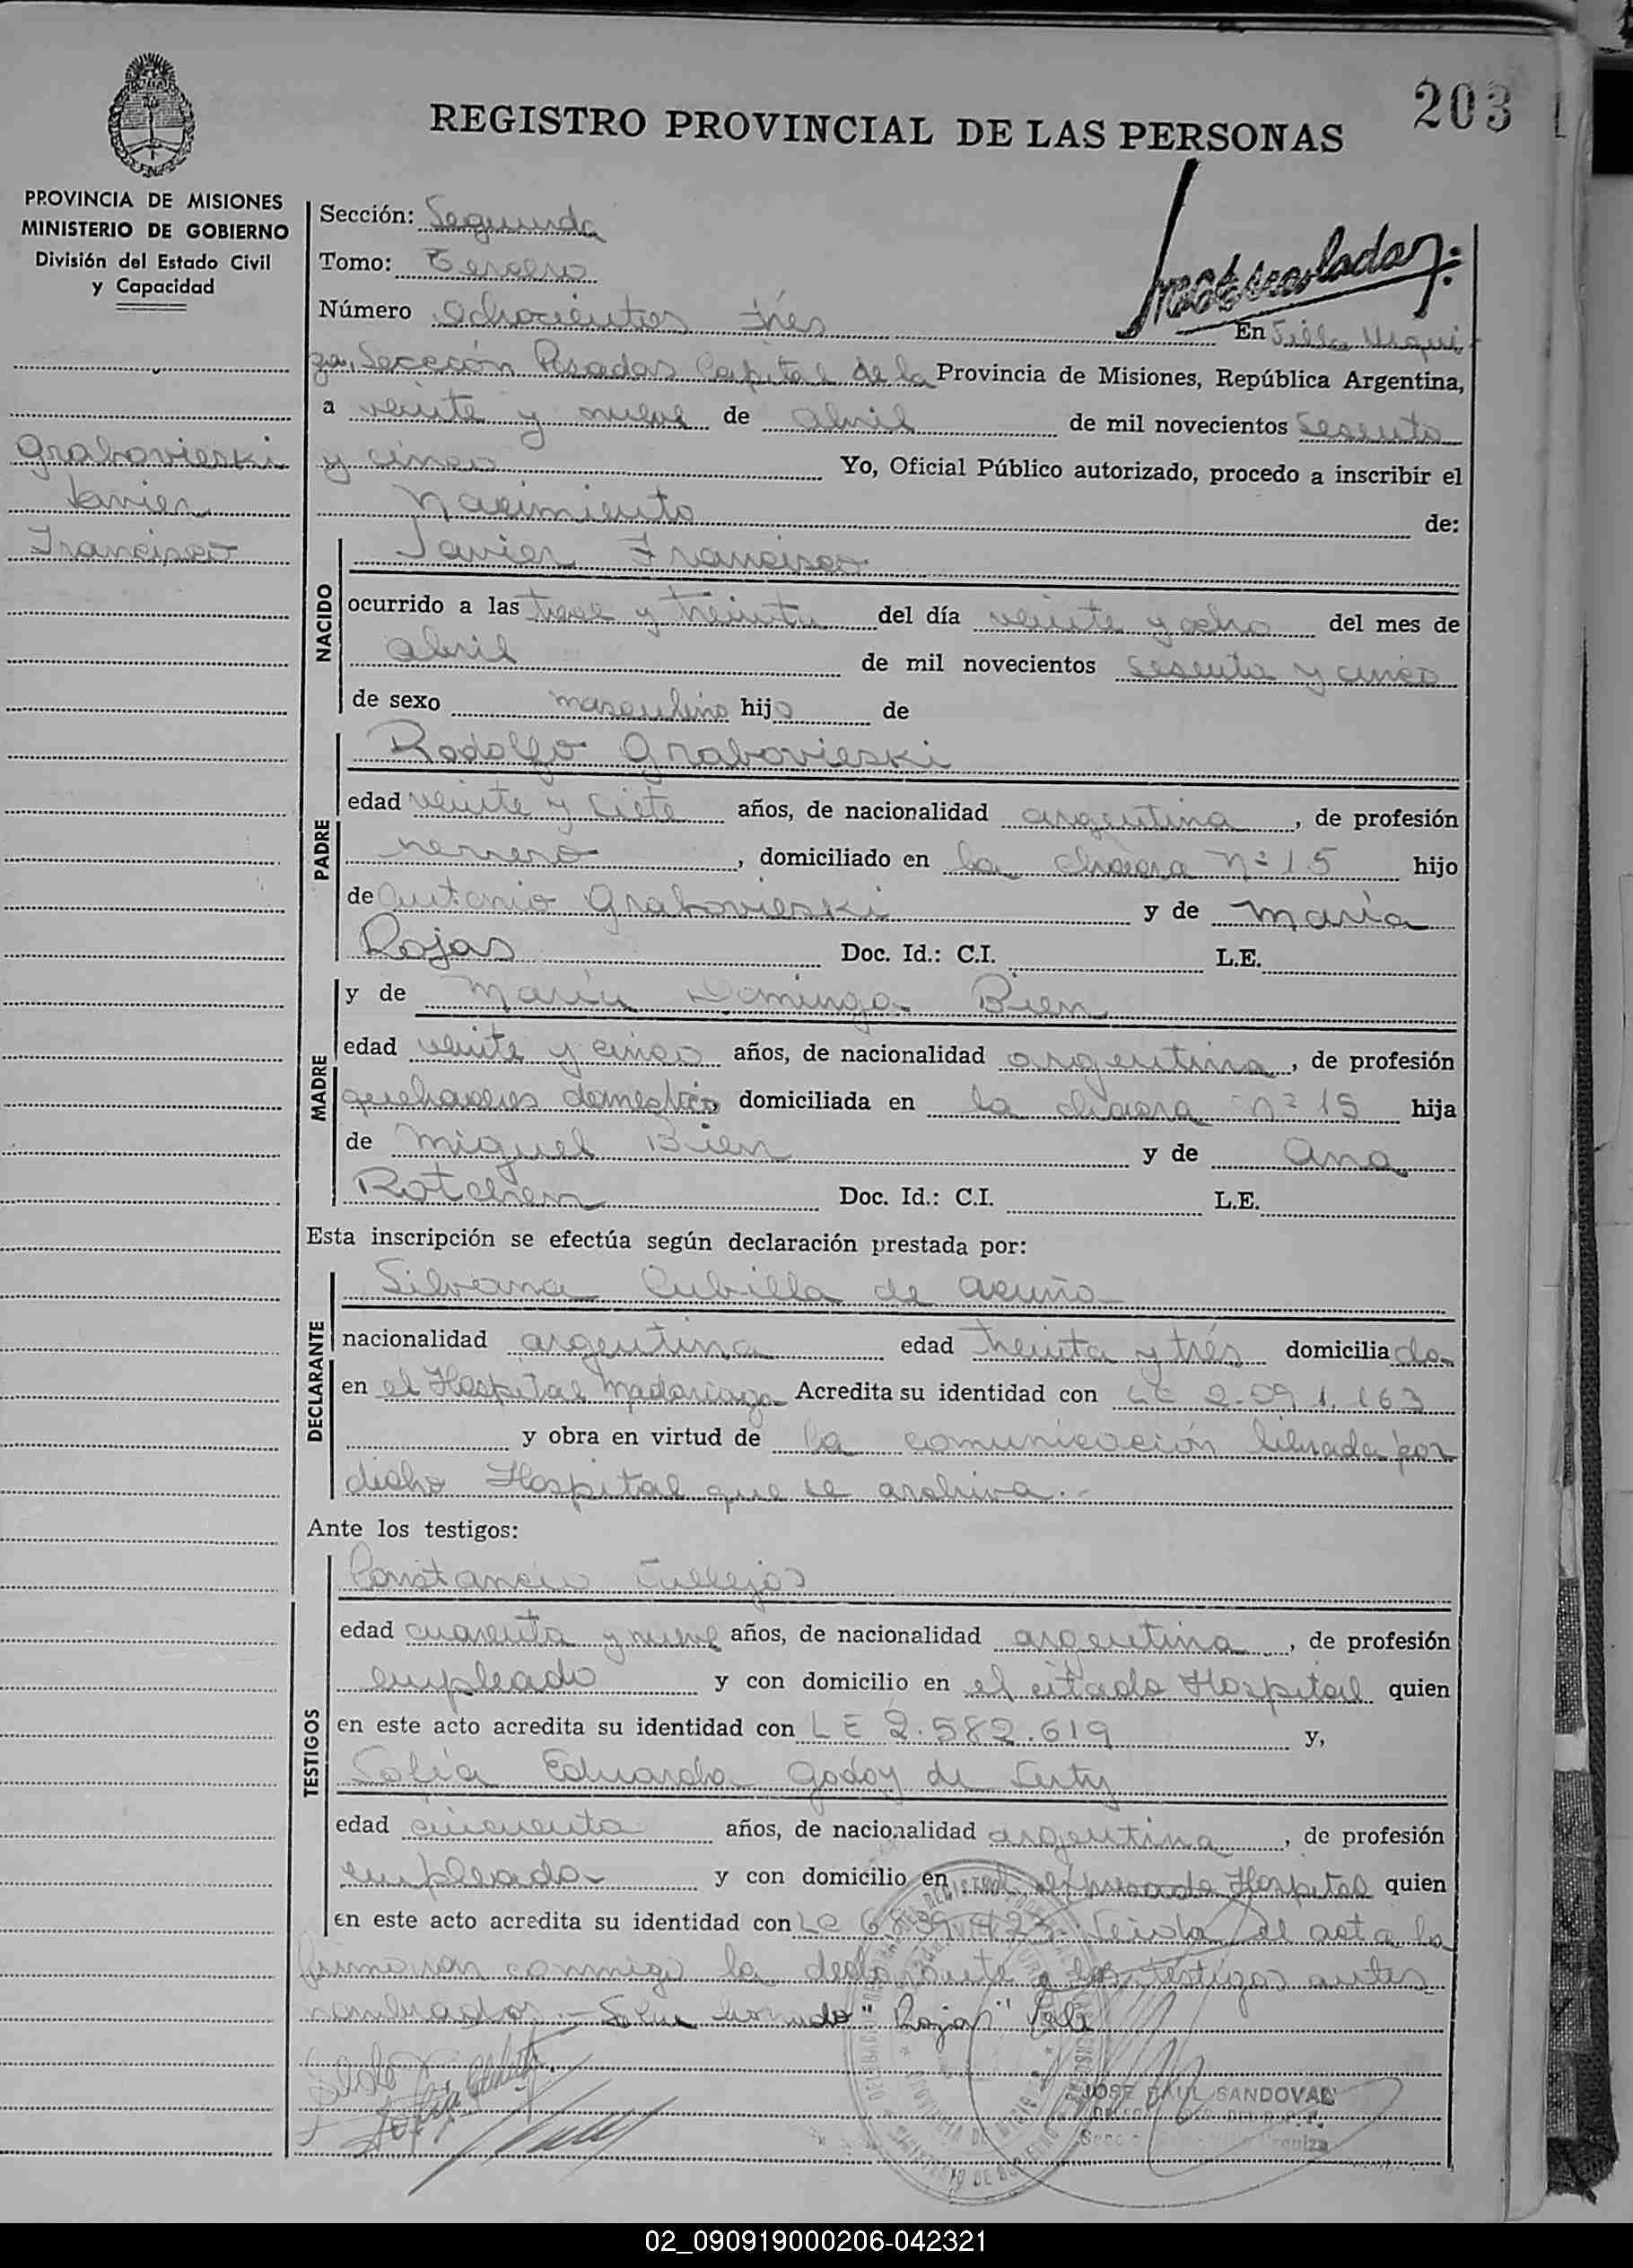 203
REGISTRO PROVINCIAL DE LAS PERSONAS
PROVINCIA DE MISIONES
MINISTERIO DE GOBIERNO
División del Estado Civil
y Capacidad
Grabovieski
Javier
Francisco
Sección: Segunda
Tomo: Tercero
Número Ochocientos trés
En Villa Urqui
za, Sección Posadas Capital de la Provincia de Misiones, República Argentina,
a veinte y nueve de abril de mil novecientos sesenta
y cinco Yo, Oficial Público autorizado, procedo a inscribir el
Nacimiento de:
NACIDO
Javier Francisco
ocurrido a las trece y treinta del día veinte y ocho del mes de
abril de mil novecientos sesenta y cinco
de sexo masculino hijo de
PADRE
Rodolfo Grabovieski
edad veinte y siete años, de nacionalidad argentina, de profesión
herrero, domiciliado en la chacra nº 15 hijo
de Antonio Grabovieski y de María
Rojas Doc. Id.: C.I. L.E.
MADRE
y de María Dominga Bien
edad veinte y cinco años, de nacionalidad argentina, de profesión
quehaceres domesticos domiciliada en la chacra nº 15 hija
de Miguel Bien y de Ana
Rotchen Doc. Id.: C.I. L.E.
Esta inscripción se efectúa según declaración prestada por:
DECLARANTE
Silvana Cubilla de Acuña
nacionalidad argentina edad treinta y trés domiciliada
en el Hospital Madariaga Acredita su identidad con LC 2.091.163
y obra en virtud de la comunicación librada por
dicho Hospital que se archiva.-
Ante los testigos:
TESTIGOS
Constancio Vallejos
edad cuarenta y nueve años, de nacionalidad argentina, de profesión
empleado y con domicilio en el citado Hospital quien
en este acto acredita su identidad con LE 2.582.619 y,
Sofía Eduarda Godoy de
edad cincuenta años, de nacionalidad argentina, de profesión
empleada y con domicilio en el expresado Hospital quien
en este acto acredita su identidad con LC Leida el acta la
firmaron conmigo la declarante y los testigos antes
nombrados.- Sobre borrado "Rojas" Vale
JOSE RAUL SANDOVAL
02_090919000206-042321